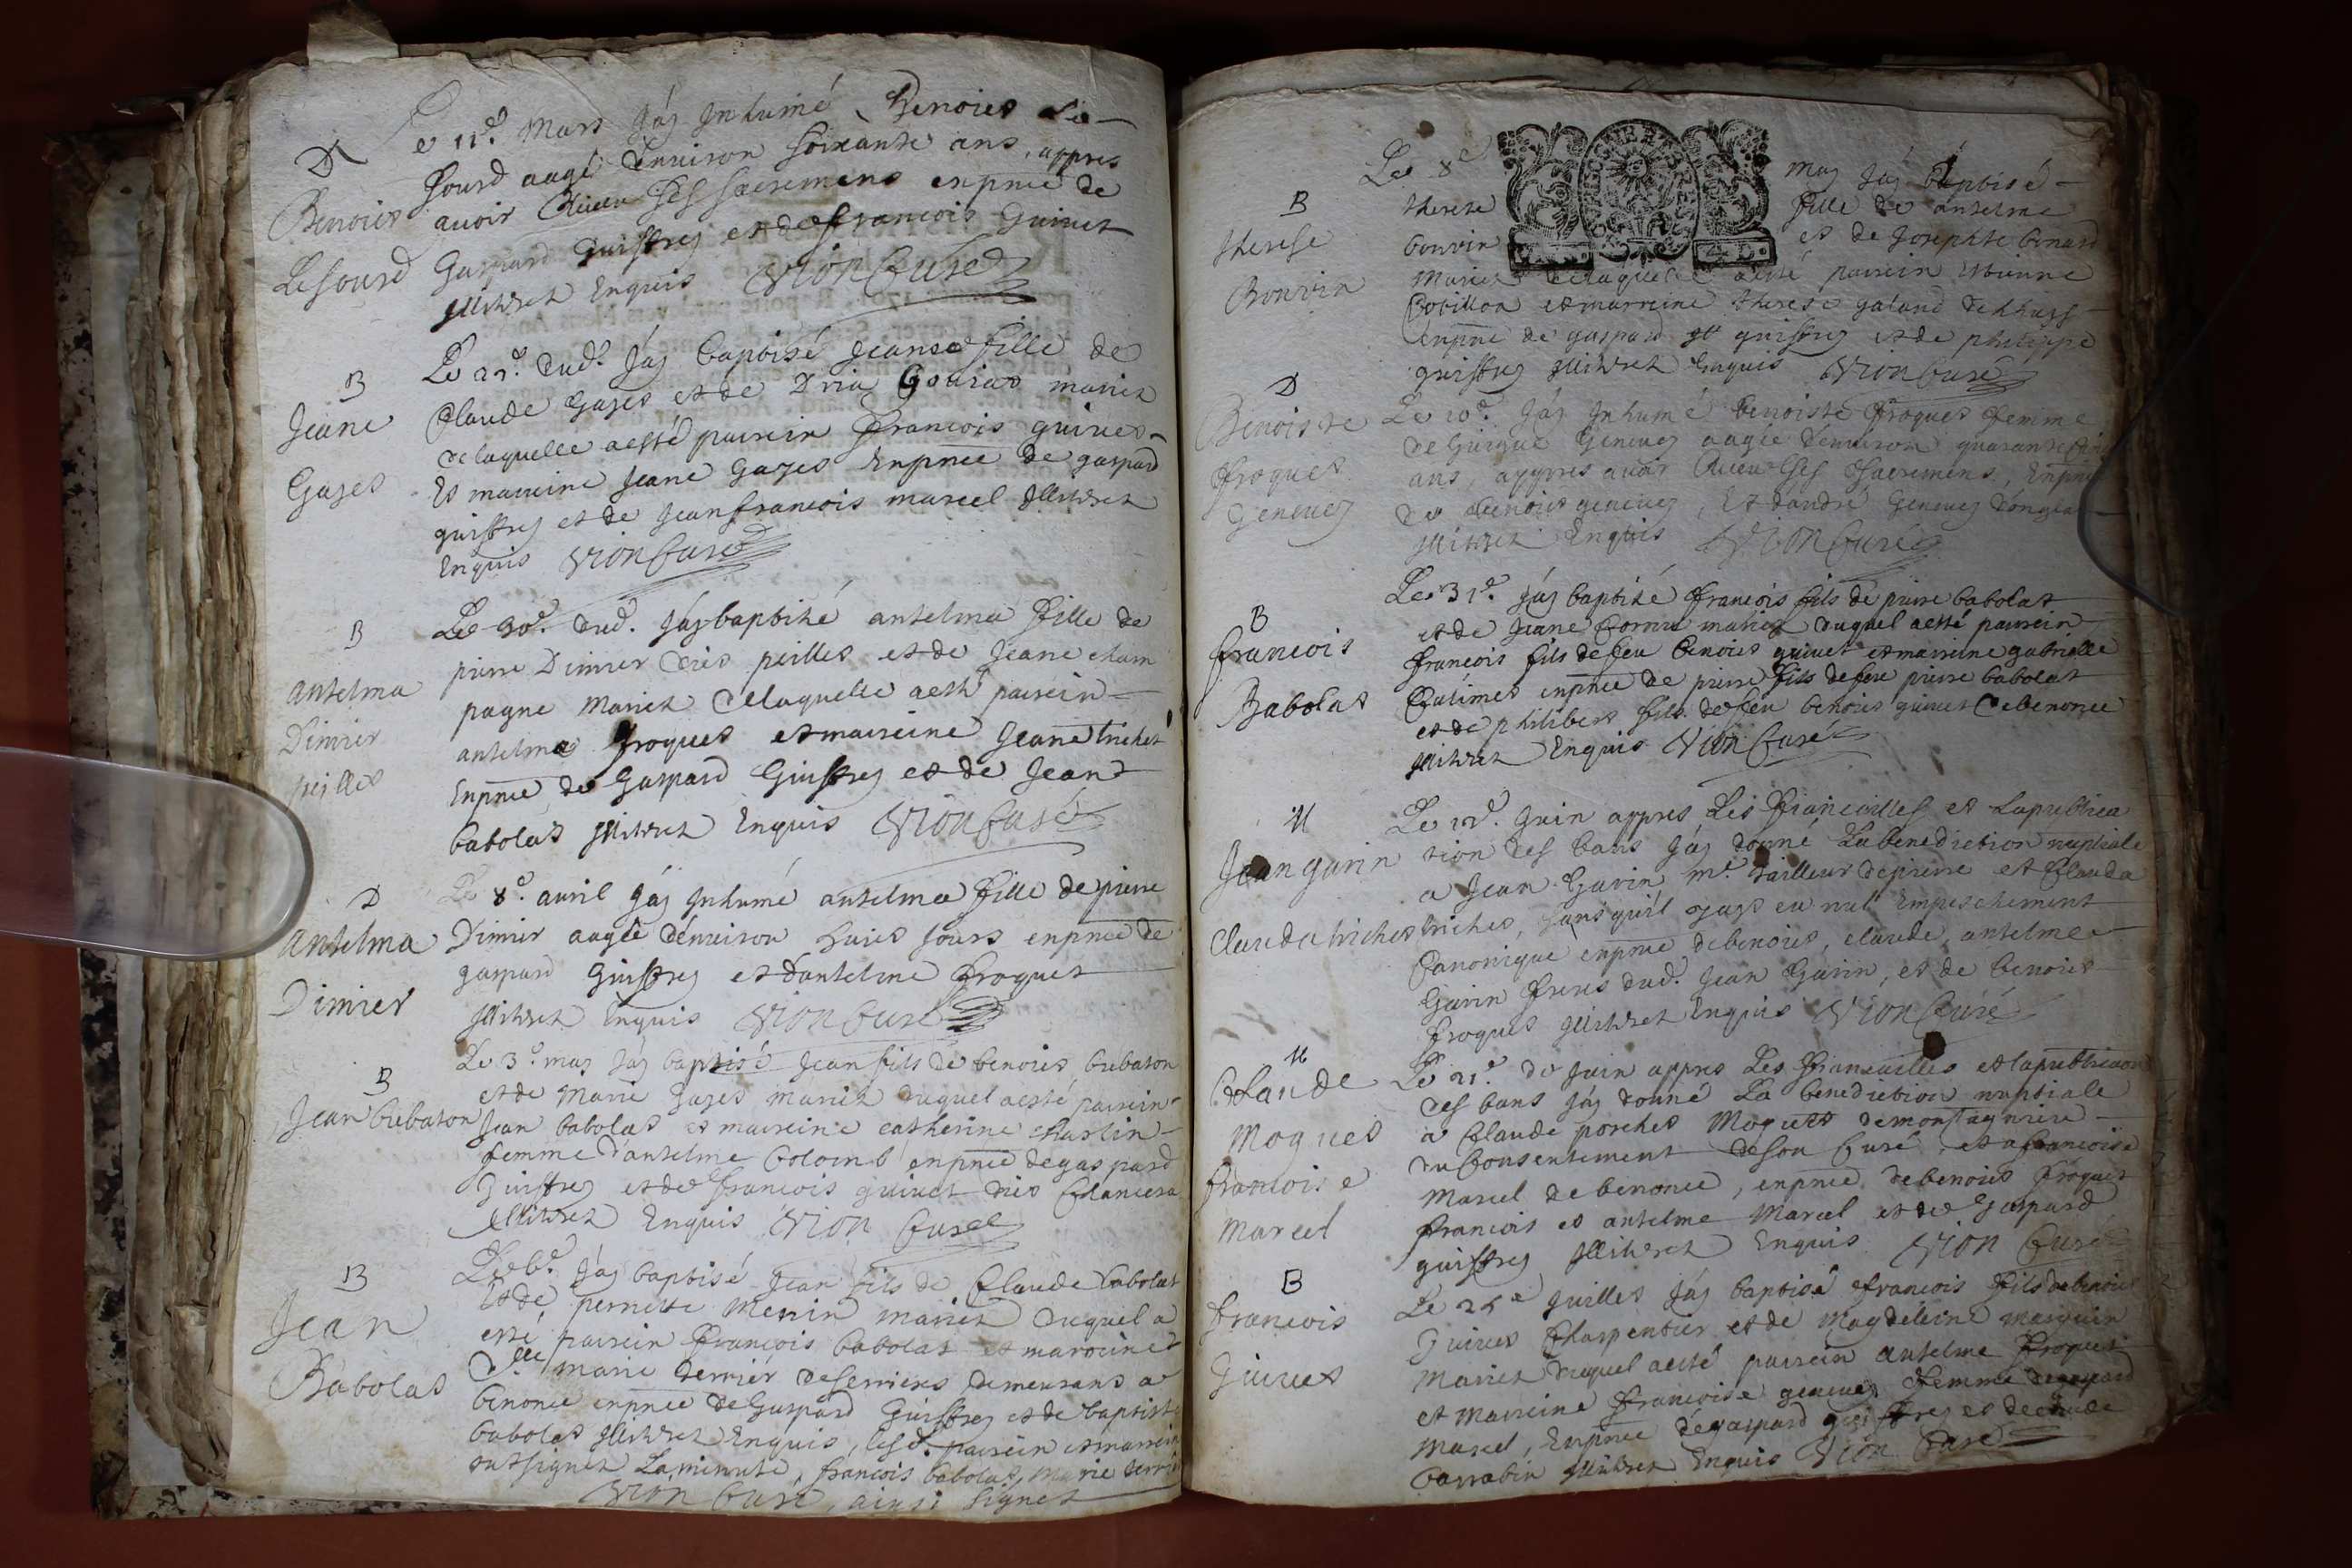 D
Benoict
Lesourd
Le 11e. Mars Jáy Inhumé Benoict Le
Sourd aagé denuiron soixante ans, appres
auoir Receu ses sacremens enpnce de
Gaspard Guiffrey et de francois Guinet
Illitrez Enquis Vion Curé
B
Jeane
Gages
Le 25e. dud. Jáy baptisé Jeane fille de
Claude Gages et de mariez
de laquelle a esté parrein francois guinet
Et marreine Jeane Gages Enpnce de gaspard
guiffrey et de Jean francois marcel Illitrez
Enquis Vion Curé
B
Antelma
Dimier
peilles
Le 30e. dud. Jáy baptisé antelma fille de
pierre Dimier peilles et de Jeane cham
pagne Mariez de laquelle a esté parrein
antelme froquet et marreine Jeane trichet
Enpnce de Gaspard Guiffrey et de Jean
babolat Illitrez Enquis Vion Curé
D
Antelma
Dimier
Le 8e. auril Jáy Inhumé antelma fille de pierre
Dimier aagée dénuiron huict Jours enpnce de
gaspard Guiffrey et dantelme froquet
Illitrez Enquis Vion Curé
B
Jean Crebaton
Le 3e. may Jáy baptisé Jean fils de benoict Crebaton
et de Marie Gages mariez duquel a esté parrein
Jean babolat et marreine catherine Charlin
femme d'antelme Colomb enpnce de gaspard
Guiffrey et de francois guinet
Illitrez Enquis Vion Curé
B
Jean
Babolat
Le 6e. Jáy baptisé Jean fils de Claude babolat
Et de pernette Menin mariez duquel a
esté parrein francois babolat et marreine
Dlle marie derrier demeurans a
benonce enpnce de Gaspard Guiffrey et de baptiste
babolat Illitrez Enquis, lesd. parrein et marreine
ont signez La minute, francois babolat, Marie derrier
Vion Curé, ainsi signez
B
therese
Bonvin
Le 8e may Jáy baptisé
therese fille de antelme
bonvin et de Josephte benard
Mariez de laquelle a esté parrein Estienne
Cotillon et marreine therese galand
enpnce de gaspard guiffrey et de philippe
guiffrey Illitrez Enquis Vion Curé
D
Benoiste
froquet
Geneuey
Le 10e. Jáy Inhumé benoiste froquet femme
de Geneuey aagée dénuiron quarante
ans, appres auoir Receu ses sacremens, Enpnce
de benoict geneuey, Et dandré Geneuey
Illitrez Enquis Vion Curé
B
francois
Babolat
Le 31e. Jáy baptisé francois fils de pierre babolat
et de Jeane Cornu mariez duquel a esté parrein
francois fils de feu benoict guinet et marreine gabrielle
Catimel enpnce de pierre fils de feu pierre babolat
et de philibert fils de feu benoict guinet de benonce
Illitrez Enquis Vion Curé
M
Jean Gavin
Clauda trichet
Le 12e. Juin appres Les fiancailles et La publica
tion des bans Jáy donné La benediction nuptiale
a Jean Gavin me. tailleur de pierre et Clauda
trichet, sans quil y aye eu nul Empeschement
Canonique enpnce de benoict, claude, antelme
Gavin freres dud. Jean Gavin, et de benoict
froquet Illitrez Enquis Vion Curé
M
Claude
Moquet
francoise
Marcel
Le 21e. de Juin appres Les fiancailles et la publication
des bans Jáy donné La benediction nuptiale
a Claude porchet Moquet de montagnieu
du Consentement de son Curé, et a francoise
Marcel de benonce, enpnce de benoict froquet
francois et antelme Marcel et de Gaspard
guiffrey Illitrez Enquis Vion Curé
B
francois
Guinet
Le 25e Juillet Jáy baptisé francois fils de benoict
Guinet Charpentier et de Magdeleine
Mariez duquel a esté parrein antelme froquet
et marreine francoise geneuey femme de gaspard
Marcel, Enpnce de gaspard guiffrey et de claude
barrabin Illitrez Enquis Vion Curé